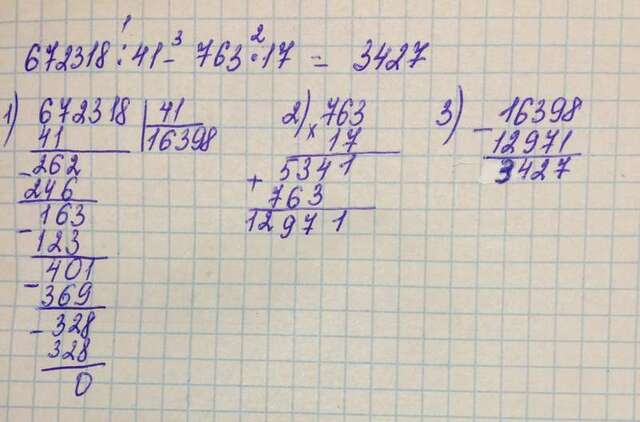 1 3 2
672318 : 41 - 763 · 17 = 3427
1) 672318 | 41
41 16398
- 262
246
- 163
123
- 401
369
- 328
328
0
2) 763
x 17
+ 5341
763
12971
3) - 16398
12971
3427